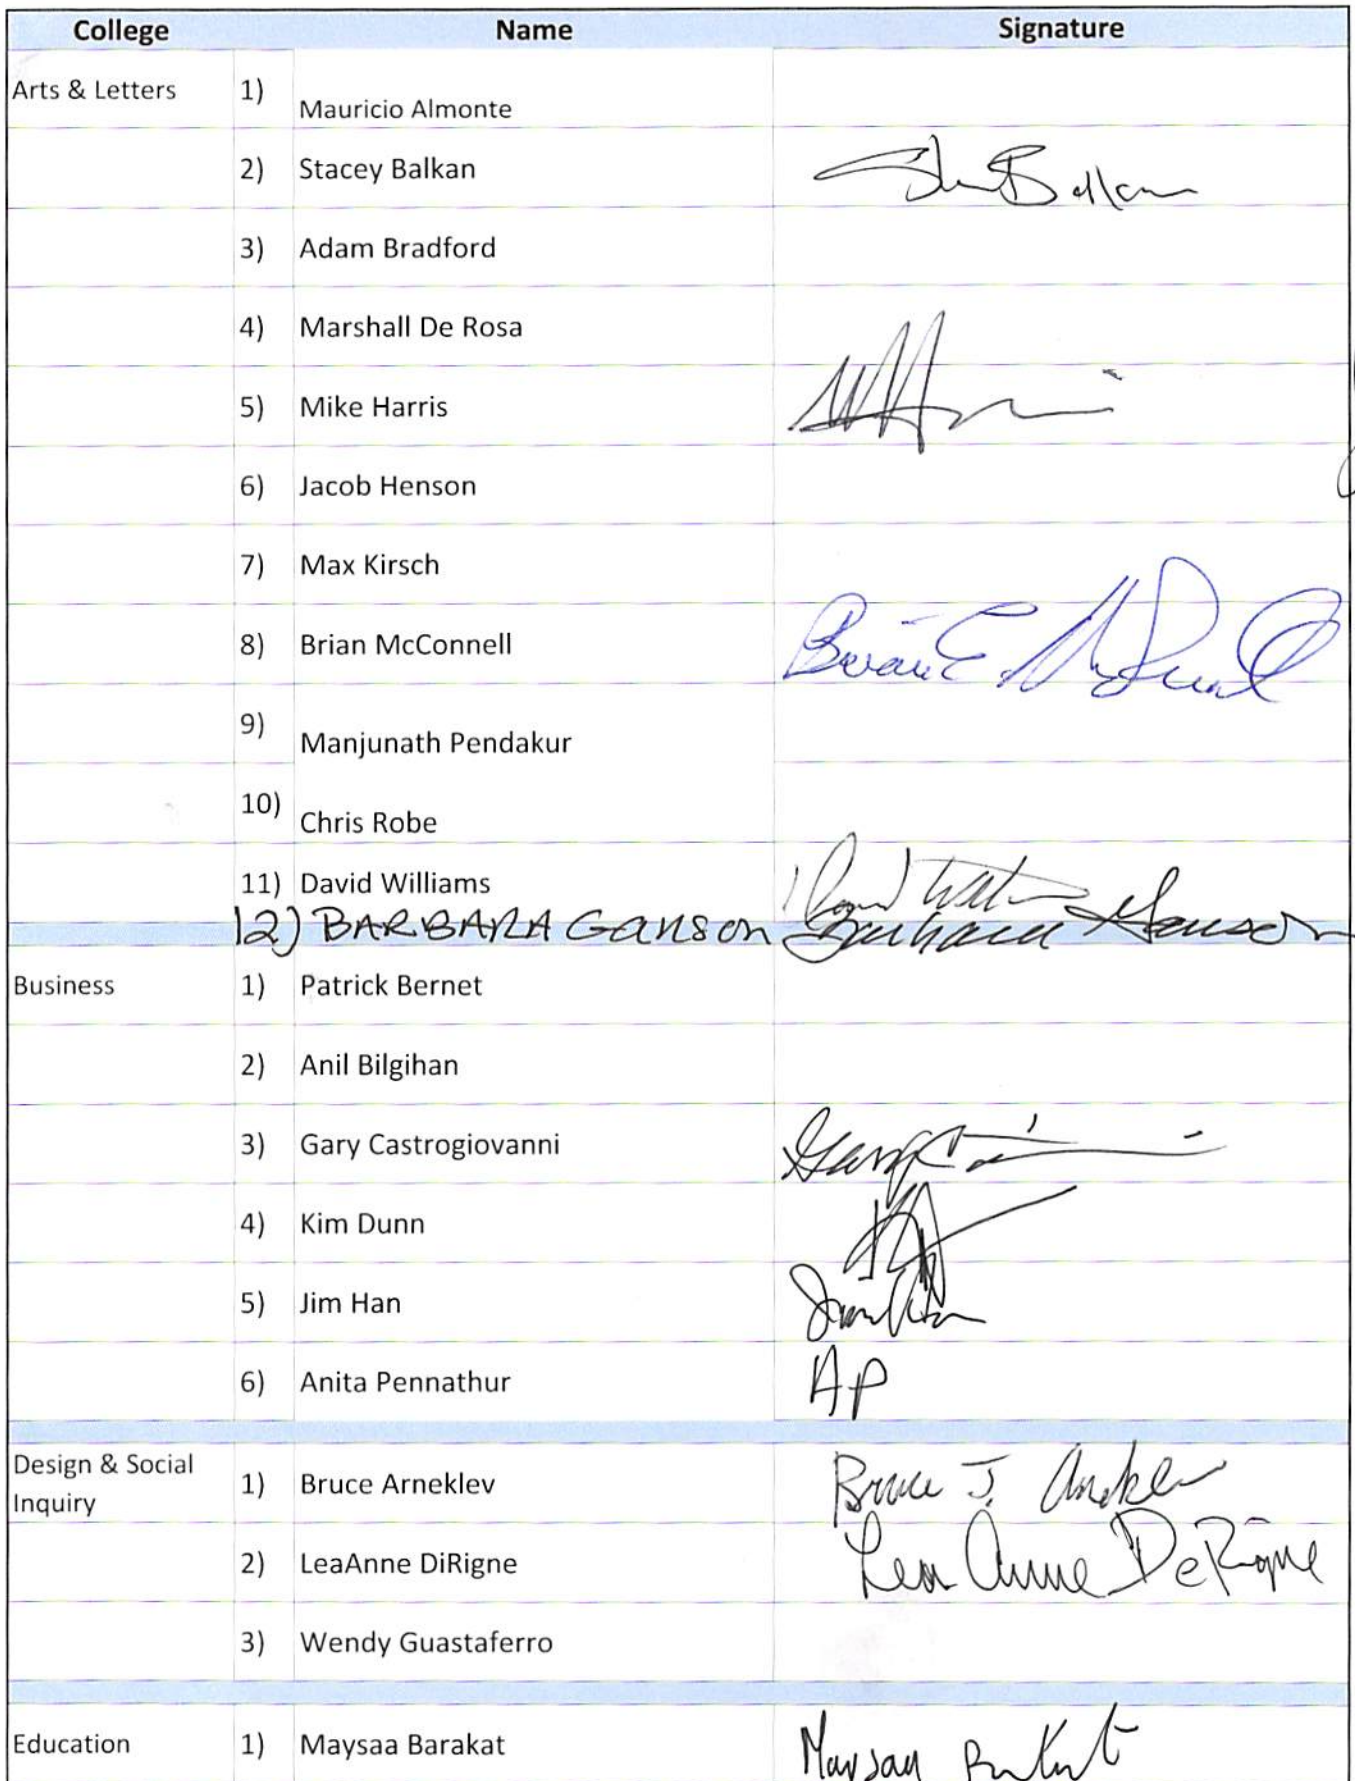 College Name Signature
Arts & Letters 1) Mauricio Almonte
2) Stacey Balkan
3) Adam Bradford
4) Marshall De Rosa
5) Mike Harris
6) Jacob Henson
7) Max Kirsch
8) Brian McConnell Brian E. McConnell
9) Manjunath Pendakur
10) Chris Robe
11) David Williams
12) BARBARA Ganson Barbara Ganson
Business 1) Patrick Bernet
2) Anil Bilgihan
3) Gary Castrogiovanni
4) Kim Dunn
5) Jim Han
6) Anita Pennathur AP
Design & Social
Inquiry 1) Bruce Arneklev Bruce J. Arneklev
2) LeaAnne DiRigne LeaAnne DeRigne
3) Wendy Guastaferro
Education 1) Maysaa Barakat Maysaa Barakat